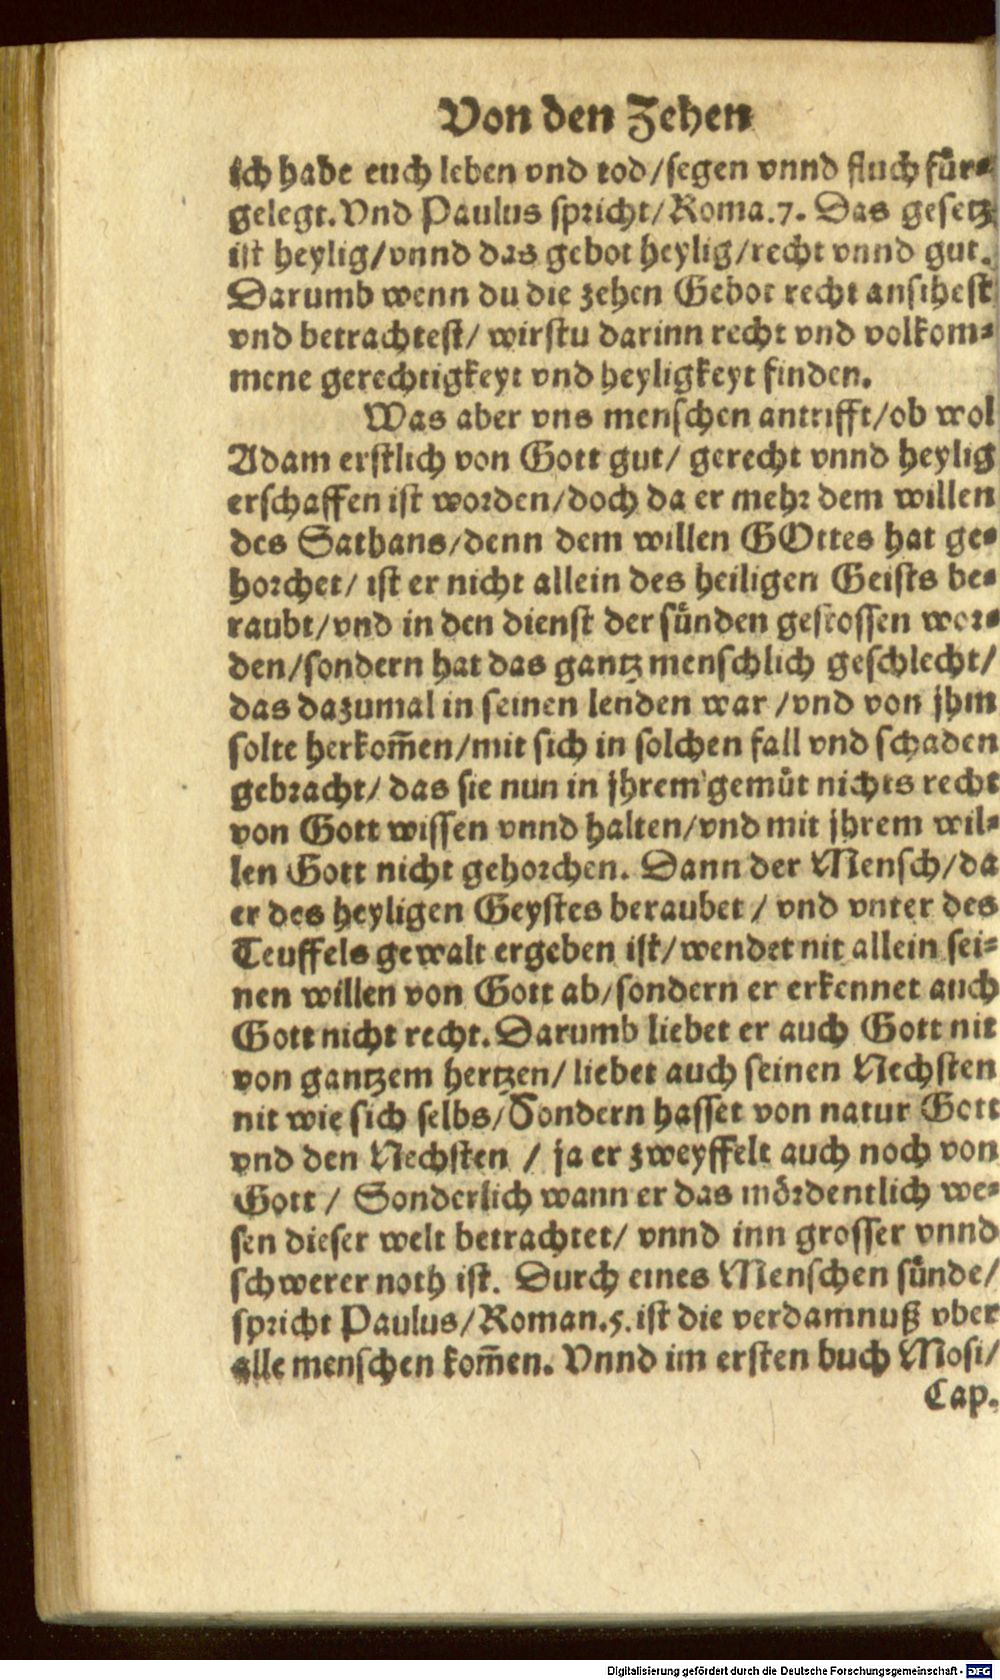 Von den Zehen
ich habe euch leben vnd tod/segen vnnd fluch für-
gelegt. Vnd Paulus spricht/Roma.7. Das gesetz
ist heylig/vnnd das gebot heylig/recht vnnd gut.
Darumb wenn du die zehen Gebot recht ansihest
vnd betrachtest/ wirstu darinn recht vnd volkom-
mene gerechtigkeyt vnd heyligkeyt finden.
Was aber vns menschen antrifft/ob wol
Adam erstlich von Gott gut/ gerecht vnnd heylig
erschaffen ist worden/doch da er mehr dem willen
des Sathans/denn dem willen GOttes hat ge-
horchet/ ist er nicht allein des heiligen Geists be-
raubt/vnd in den dienst der sünden gestossen wor-
den/sondern hat das gantz menschlich geschlecht/
das dazumal in seinen lenden war /vnd von jhm
solte herkom̄en/mit sich in solchen fall vnd schaden
gebracht/ das sie nun in jhrem gemüt nichts recht
von Gott wissen vnnd halten/vnd mit jhrem wil-
len Gott nicht gehorchen. Dann der Mensch/da
er des heyligen Geystes beraubet / vnd vnter des
Teuffels gewalt ergeben ist/wendet nit allein sei-
nen willen von Gott ab/sondern er erkennet auch
Gott nicht recht. Darumb liebet er auch Gott nit
von gantzem hertzen/ liebet auch seinen Nechsten
nit wie sich selbs/Sondern hasset von natur Gott
vnd den Nechsten / ja er zweyffelt auch noch von
Gott / Sonderlich wann er das mördentlich we-
sen dieser welt betrachtet/ vnnd inn grosser vnnd
schwerer noth ist. Durch eines Menschen sünde/
spricht Paulus/Roman.5. ist die verdamnuß vber
alle menschen kom̄en. Vnnd im ersten buch Mosi/
Cap.
Digitalisierung gefördert durch die Deutsche Forschungsgemeinschaft - DFG